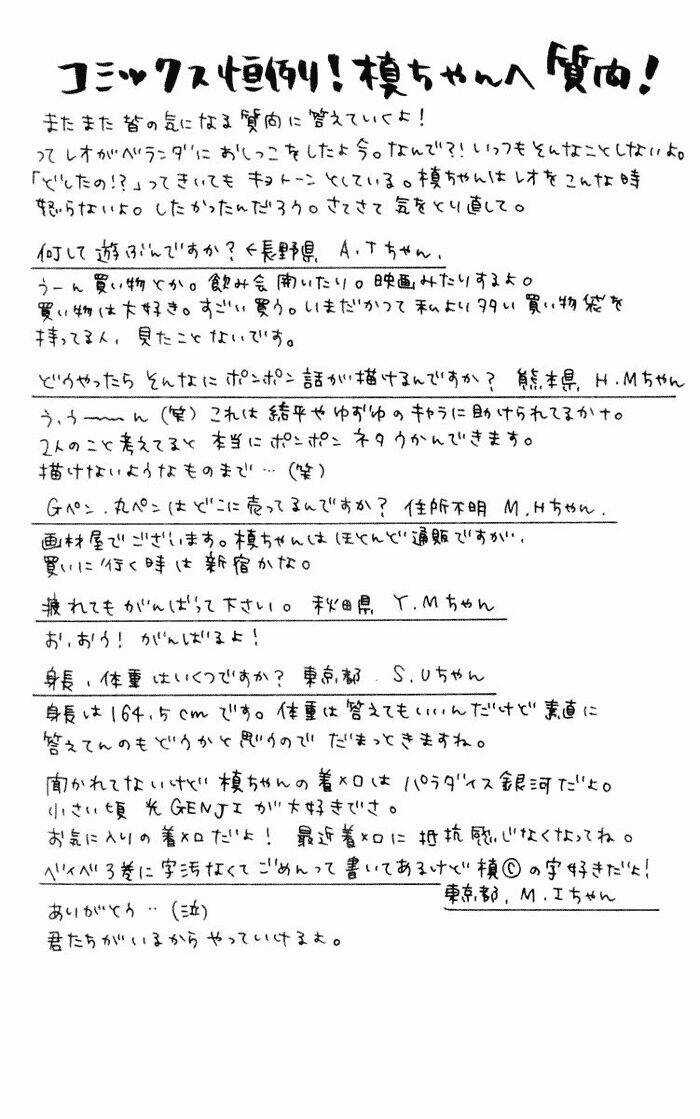 コミックス恒例!槙ちゃんへ質問!
またまた皆の気になる質問に答えていくよ!
ってレオがベランダにおしっこをしたよ今。なんで?!いつもそんなことしないよ。
「どしたの!?」ってきいてもキョトーンとしている。槙ちゃんはレオをこんな時
怒らないよ。したかったんだろう。さてさて気をとり直して。
何して遊ぶんですか?←長野県 A.Tちゃん.
うーん買い物とか。飲み会開いたり。映画みたりするよ。
買い物は大好き。すごい買う。いまだかつて私より多い買い物袋を
持ってる人、見たことないです。
どうやったらそんなにポンポン話が描けるんですか? 熊本県 H.Mちゃん
う、う〜〜ん(笑)これは結平やゆずゆのキャラに助けられてるかナ。
2人のこと考えてると本当にポンポンネタうかんできます。
描けないようなものまで…(笑)
Gペン、丸ペンはどこに売ってるんですか? 住所不明 M.Hちゃん.
画材屋でございます。槙ちゃんはほとんど通販ですが、
買いに行く時は新宿かな。
疲れてもがんばって下さい。 秋田県 Y.Mちゃん
お、おう!がんばるよ!
身長、体重はいくつですか? 東京都. S.Uちゃん
身長は164.5cmです。体重は答えてもいいんだけど素直に
答えてんのもどうかと思うのでだまっときますね。
聞かれてないけど槙ちゃんの着メロはパラダイス銀河だよ。
小さい頃光GENJIが大好きでさ。
お気に入りの着メロだよ! 最近着メロに抵抗感じなくなってね。
ベイベ3巻に字汚なくてごめんって書いてあるけど槙©の字好きだよ!
東京都. M.Iちゃん
ありがとう‥(泣)
君たちがいるからやっていけるよ。